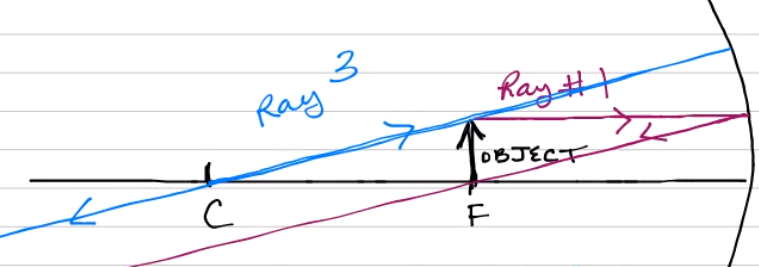 Ray 3
Ray #1
OBJECT
C
F